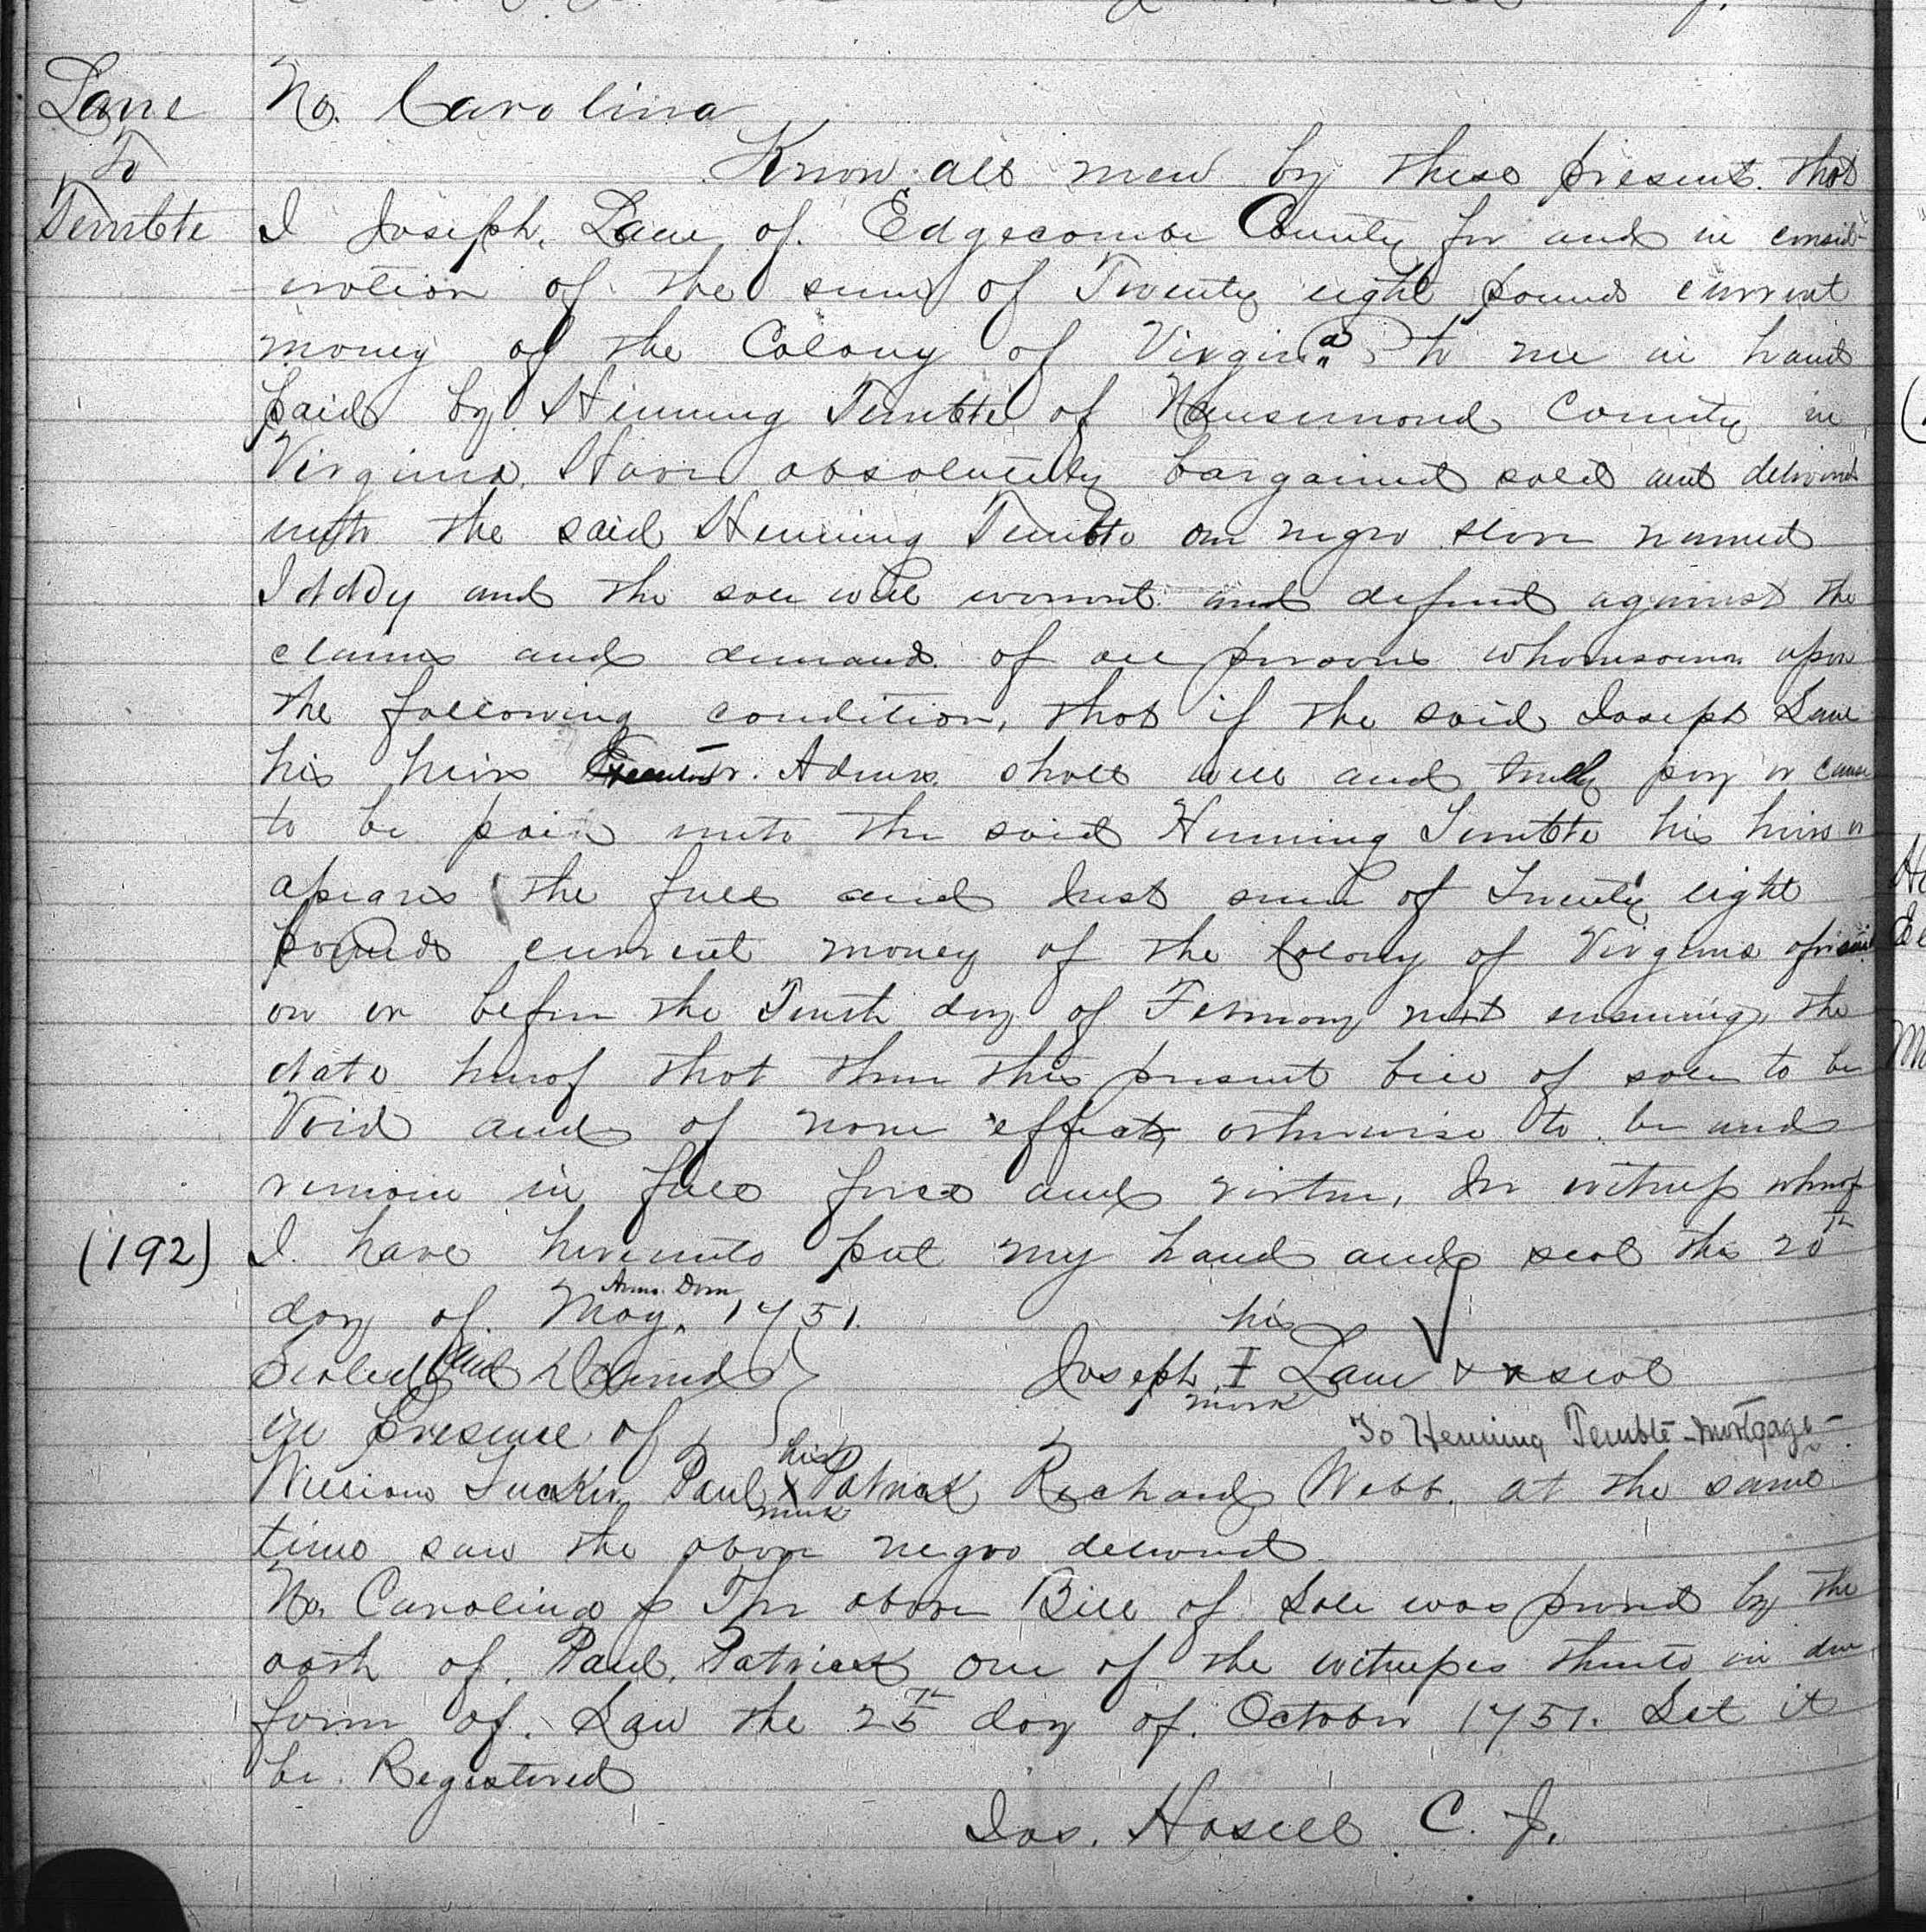 Lane
To
Tembte
No. Carolina
Know all men by these present that
I Joseph Lane of Edgecombe County for and in consid-
eration of the sum of Twenty eight pounds current
money of the Colony of Virginia to me in hand
paid by Henning Tembte of Nansemond County in
Virginia. Have absolutely bargained sold and delivered
unto the said Henning Tembte one negro slave named
Iddy and the sale will warrant and defend against the
claims and demands of all persons whomsoever upon
the following condition, that if the said Joseph Lane
his heirs Executor. Admrs. shall well and truly pay or cause
to be paid unto the said Henning Tembte his heirs or
assigns the full and Just sum of Twenty eight
pounds current money of the Colony of Virginia aforesaid
on or before the Tenth day of February next ensuing, the
date hereof that then this present bill of sale to be
Void and of none effect, otherwise to be and
remain in full force and virtue, In witness whereof
(192) I have hereunto put my hand and seal this 20th
day of May, Anno. Dom 1751.
Sealed and Delivered
his
Joseph I Lane x x seal
mark
in Presence of
To Henning Temble - mortgage -
his
William Tucker Paul X Patrick Richard Webb. at the same
mark
time saw the above negro delivered
No. Carolina The above Bill of Sale was proved by the
oath of Paul Patrick one of the witnesses thereto in due
form of Law the 25th day of October 1751. Let it
be Registered
Jas. Hasell C. J.